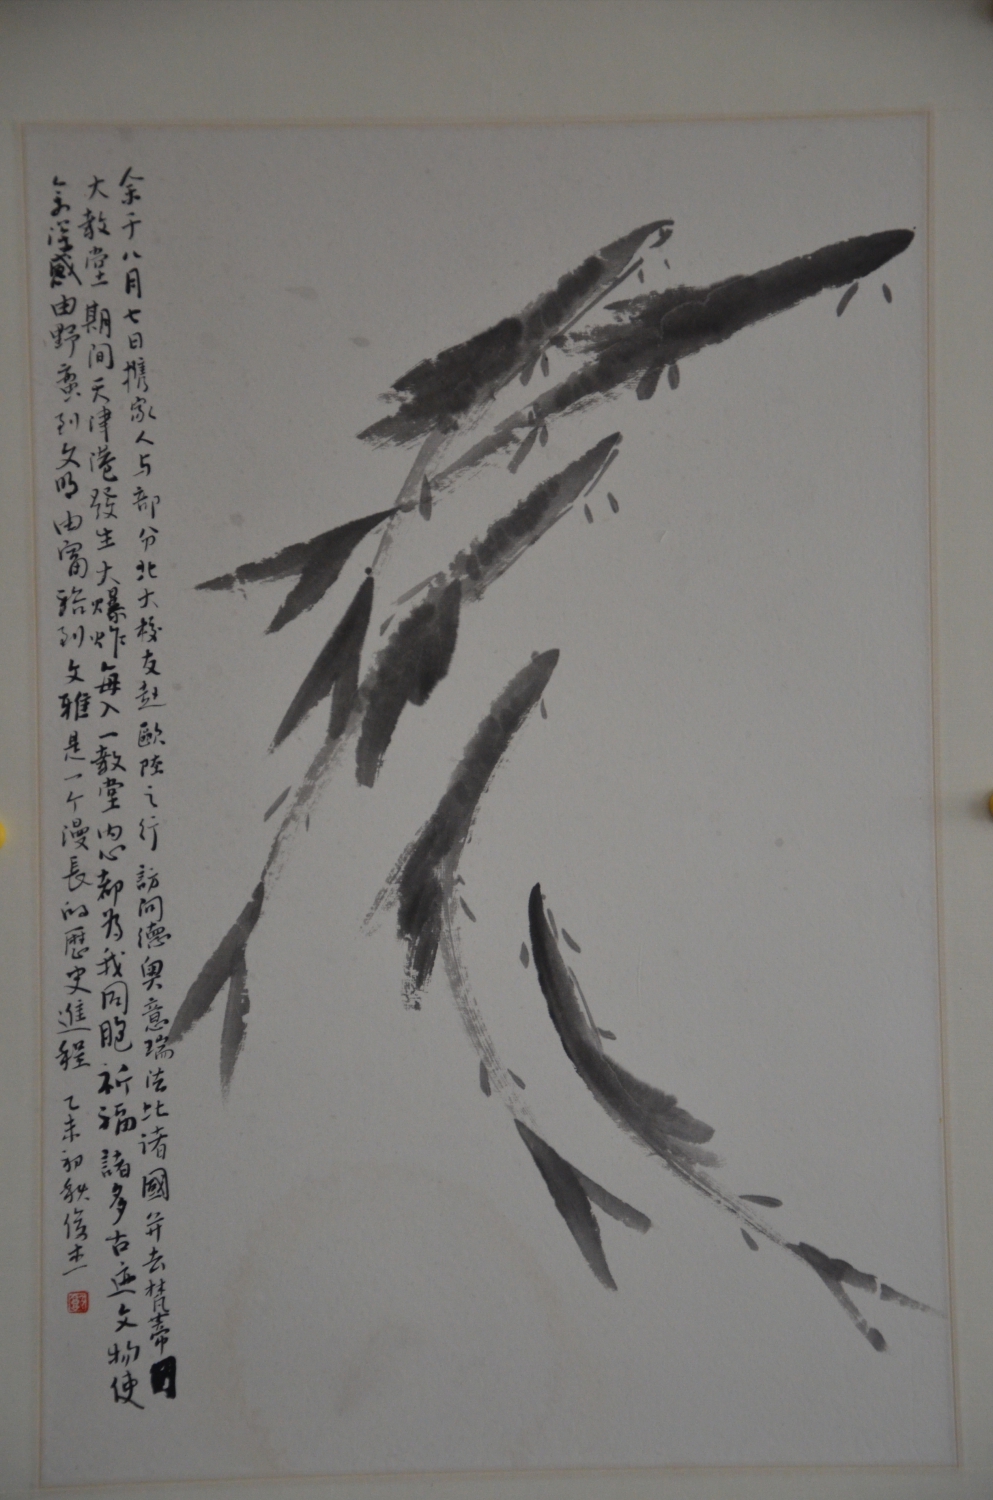 余于八月七日携家人与部分北大校友赴歐陸之行訪问德奥意瑞法比诸國并去梵蒂
大教堂期间天津港發生大爆炸每入一教堂内心都为我同胞祈福諸多古迹文物使
余深感由野蛮到文明由富 到文雅是一个漫長的歷史進程 乙未初秋俊杰